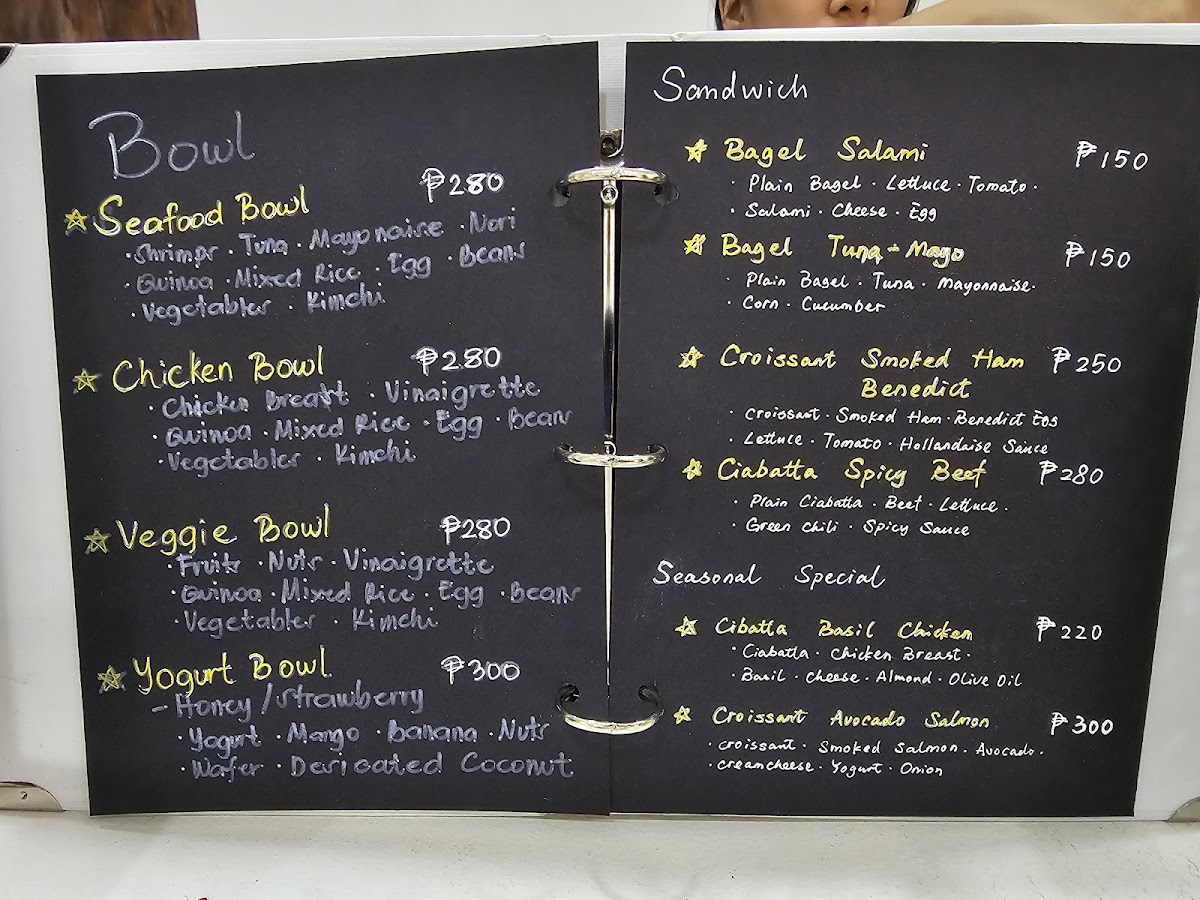 Bowl
₱280
☆ Seafood Bowl
· Shrimps · Tuna · Mayonaise · Nori
· Quinoa · Mixed Rice · Egg · Beans
· Vegetables · Kimchi
☆ Chicken Bowl ₱280
· Chicken Breast · Vinaigrette
· Quinoa · Mixed Rice · Egg · Beans
· Vegetables · Kimchi
☆ Veggie Bowl ₱280
· Fruits · Nuts · Vinaigrette
· Quinoa · Mixed Rice · Egg · Beans
· Vegetables · Kimchi
☆ Yogurt Bowl ₱300
- Honey / Strawberry
· Yogurt · Mango · Banana · Nuts
· Wafer · Desicated Coconut
Sandwich
☆ Bagel Salami ₱150
· Plain Bagel · Lettuce · Tomato ·
· Salami · Cheese · Egg
☆ Bagel Tuna - Mayo ₱150
· Plain Bagel · Tuna · Mayonnaise ·
· Corn · Cucumber
☆ Croissant Smoked Ham ₱250
Benedict
· Croissant · Smoked Ham · Benedict Egg
· Lettuce · Tomato · Hollandaise Sauce
☆ Ciabatta Spicy Beef ₱280
· Plain Ciabatta · Beef · Lettuce ·
· Green Chili · Spicy Sauce
Seasonal Special
☆ Cibatta Basil Chicken ₱220
· Ciabatta · Chicken Breast ·
· Basil · Cheese · Almond · Olive Oil
☆ Croissant Avocado Salmon ₱300
· Croissant · Smoked Salmon · Avocado ·
· creamcheese · Yogurt · Onion